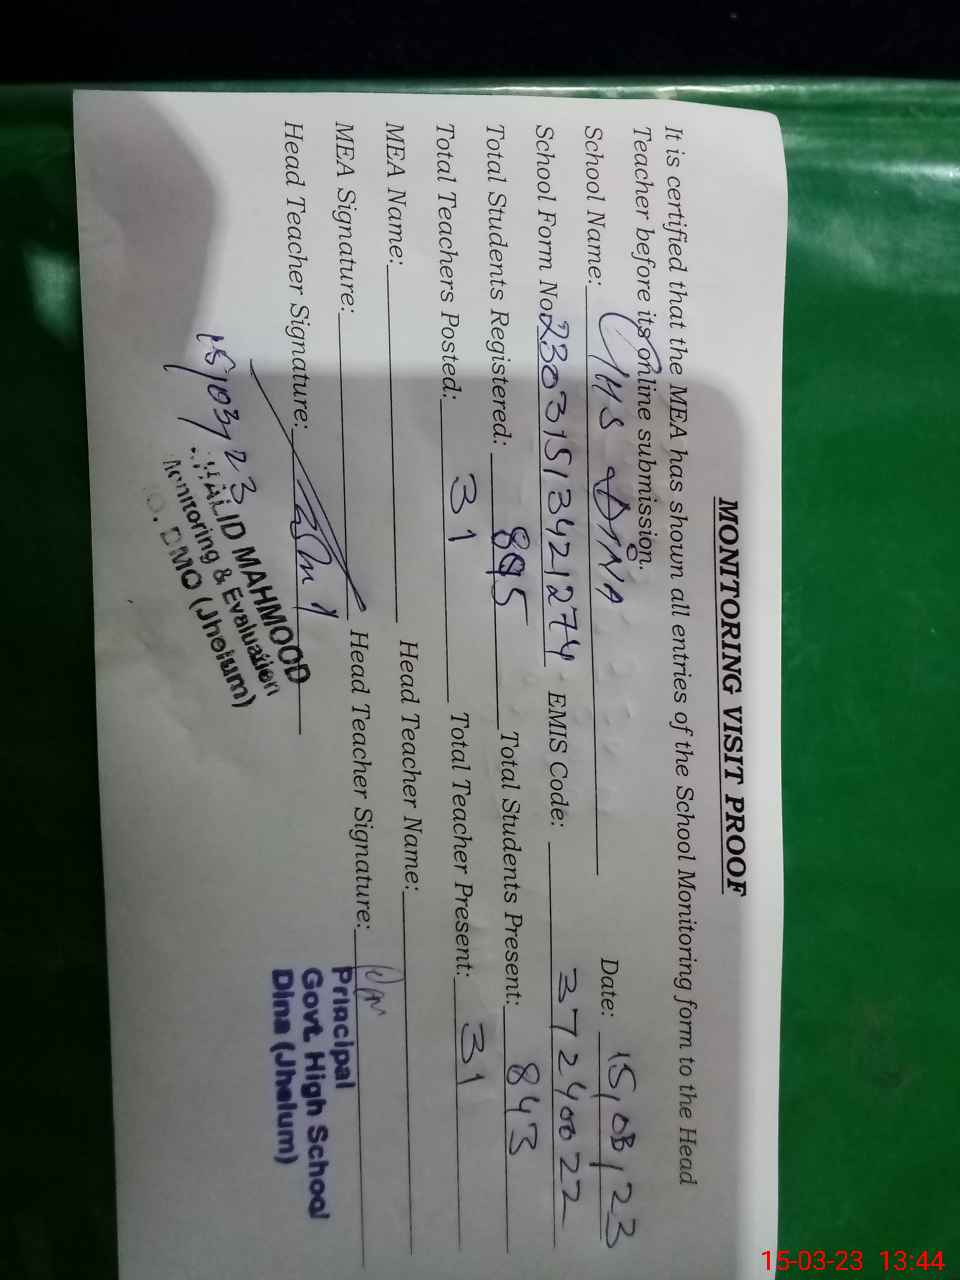 MONITORING VISIT PROOF
It is certified that the MEA has shown all entries of the School Monitoring form to the Head
Teacher before its online submission.
School Name: GHS DINA Date: 15/03/23
School Form No. 23031513421274 EMIS Code: 37240022
Total Students Registered: 895 Total Students Present: 843
Total Teachers Posted: 31 Total Teacher Present: 31
MEA Name: Head Teacher Name:
MEA Signature: Head Teacher Signature:
Head Teacher Signature:
Principal
Govt. High School
Dina (Jhelum)
15/03/23
KHALID MAHMOOD
Monitoring & Evaluation
DMO (Jhelum)
15-03-23 13:44